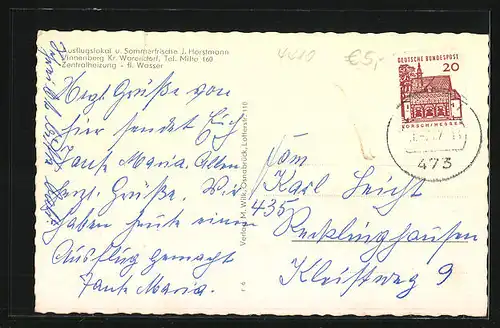 Ausflugslokal u. Sommerfrische J. Horstmann
Vinnenberg Kr. Warendorf, Tel. Milte 160
Zentralheizung - fl. Wasser
4410
€5,-
DEUTSCHE BUNDESPOST
20
LORSCH/HESSEN
473
Herzl. Grüße von
hier sendet Euch
Tante Maria. Allen
herzl. Grüße. Wir
haben heute einen
Ausflug gemacht
Tante Maria.
Verlag M. Wilk, Osnabrück, Lotterstr. 110
Fam
Karl Leicht
435 Recklinghausen
Kleistweg 9